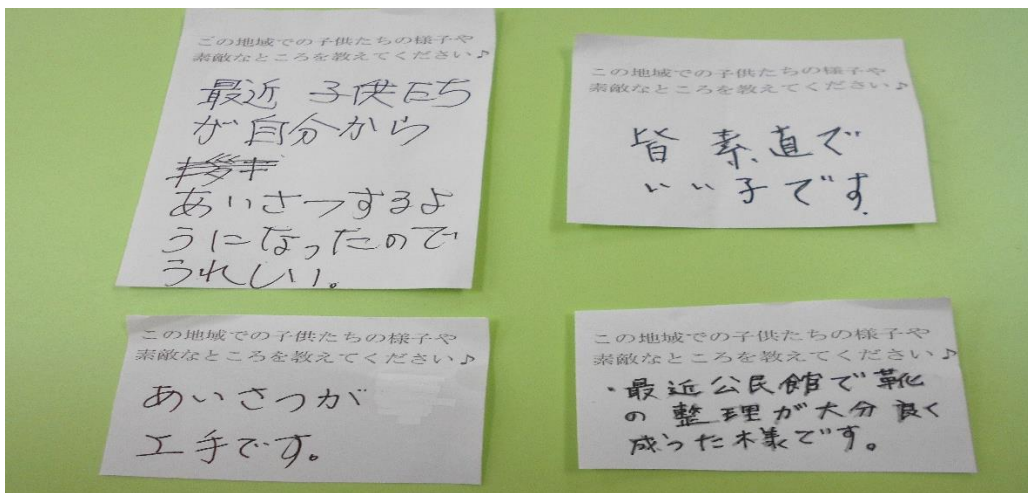 この地域での子供たちの様子や
素敵なところを教えてください♪
最近 子供たち
が自分から
あいさつするよ
うになったので
うれしい。
この地域での子供たちの様子や
素敵なところを教えてください♪
皆 素直で
いい子です
この地域での子供たちの様子や
素敵なところを教えてください♪
あいさつが
上手です。
この地域での子供たちの様子や
素敵なところを教えてください♪
・最近公民館で靴
の整理が大分良く
成った様です。